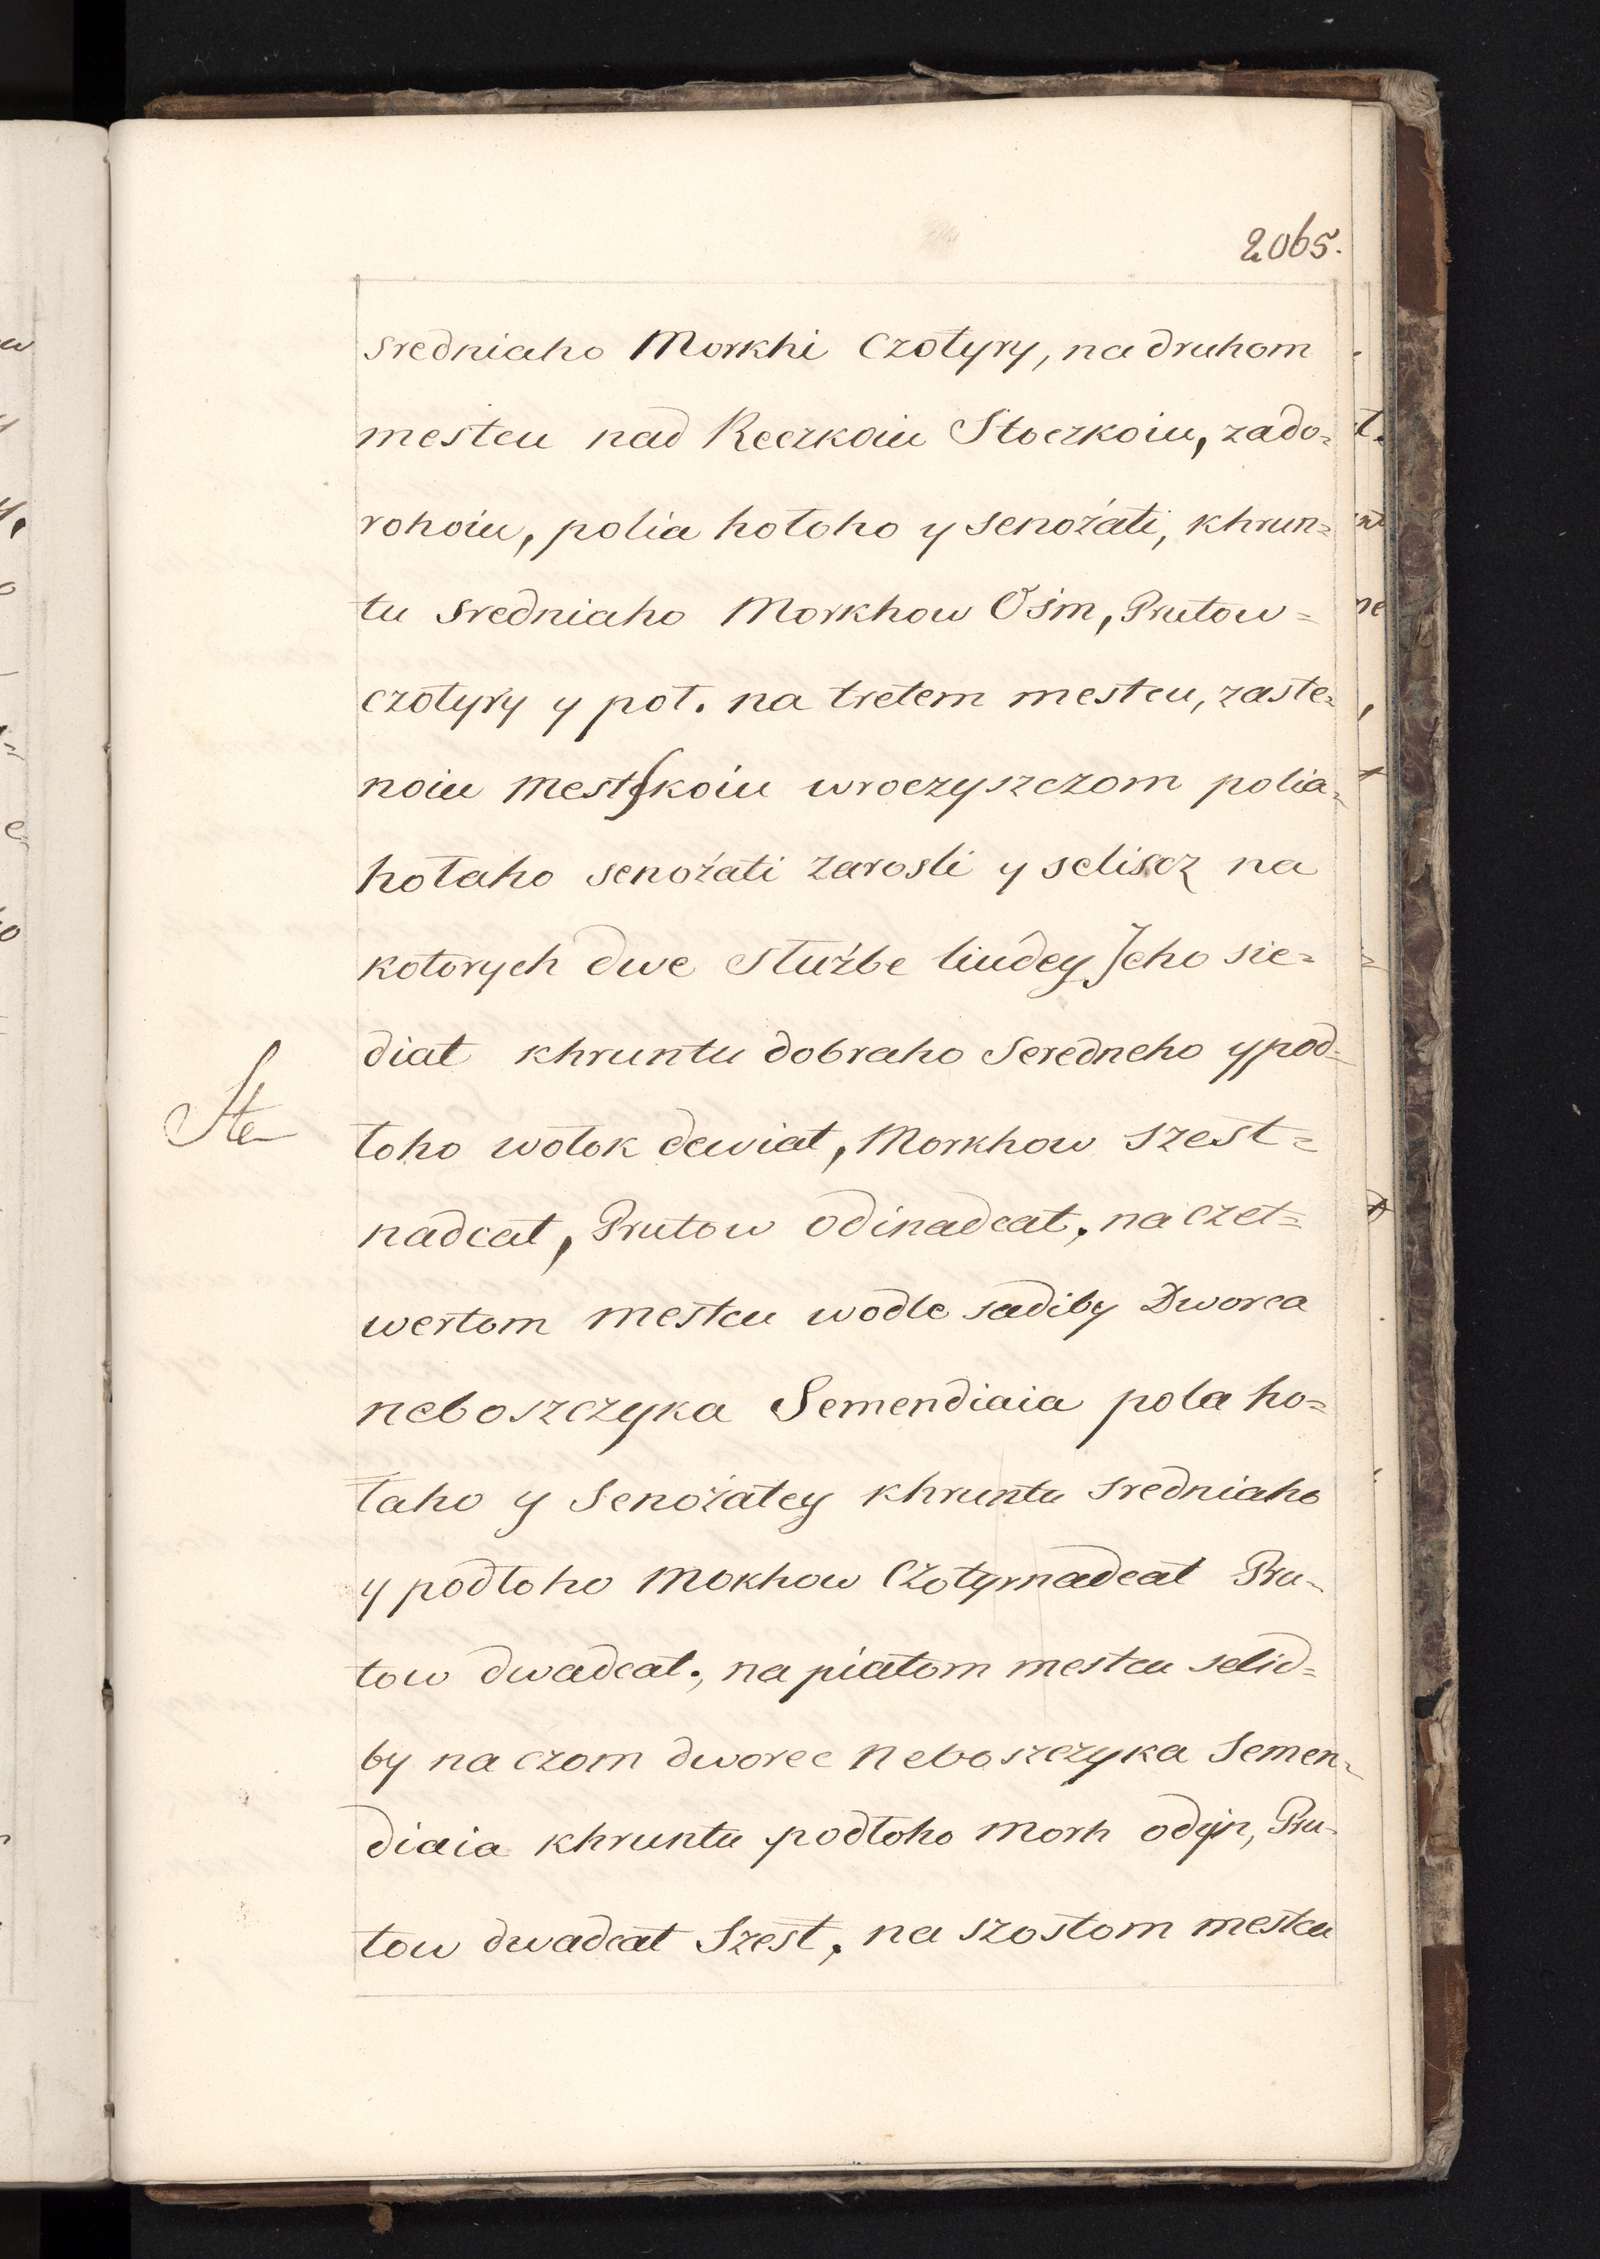 2065.
sredniaho Morkhi Czotyry, na druhom
mestcu nad Reczkoiu Stoczkoiu, zado=
rohoiu, polia hołoho y senożati, khrun=
tu sredniaho Morkhow Ośm, Prutow=
czotyry y poł. na tretem mestcu, zaste=
noiu mestskoiu wroczyszczom polia=
hołaho senożati zarosli y seliscz na
kotorych dwe służbe liudey Jeho sie=
diat khruntu dobraho Seredneho y pod=
łoho wołok dewiat, Morkhow szest=
nadcat, Prutow odinadcat, na czet=
wertom mestcu wodle sadiby Dworca
neboszczyka Semendiaia pola ho=
łaho y Senożatey khruntu sredniaho
y podłoho Mokhow Czotyrnadcat Pru=
tow dwadcat., na piatom mestcu selid=
by na czom dworec Neboszczyka Semen=
diaia khruntu podłoho morh odyn, Pru=
tow dwadcat Szest, na szostom mestcu